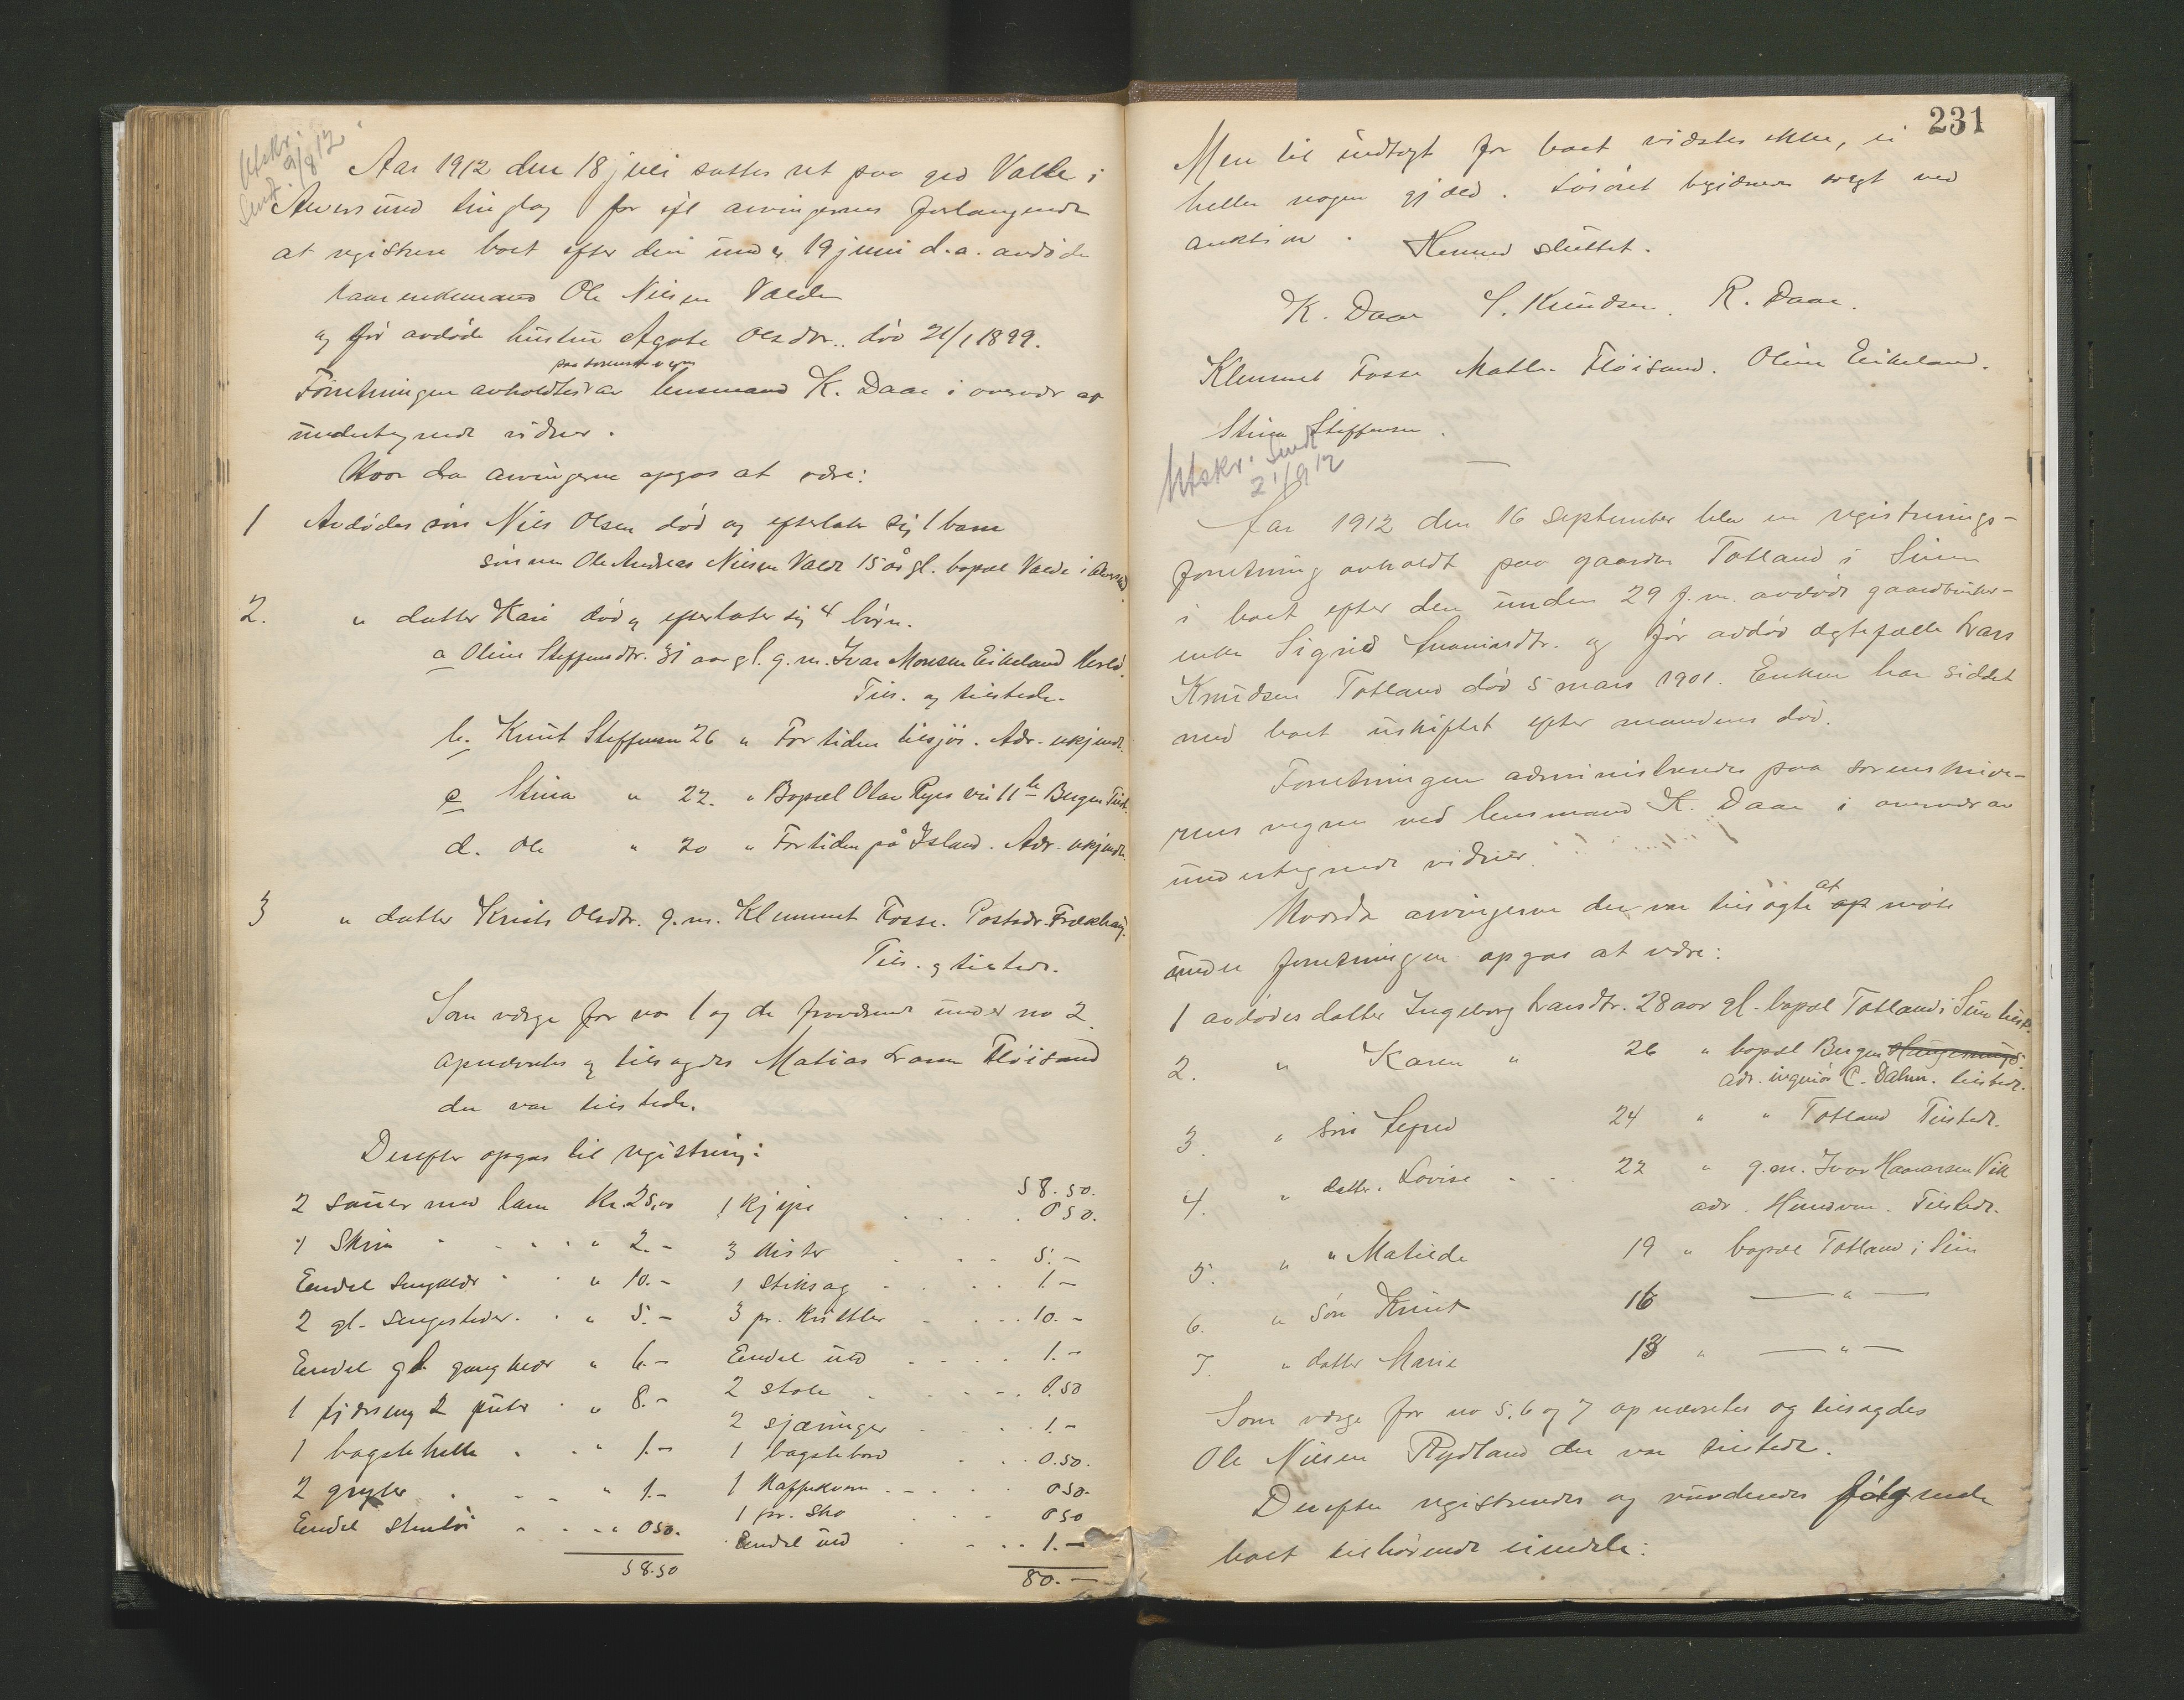 Utskr.
Sendt 9/8 12
Aar 1912 den 18 juli sattes ret paa grd Valle i
Alversund tinglag for efl arvingernes forlangende
at registrere boet efter den under 19 juni d.a. avdøde
kaarenkemand Ole Nilsen Valde
og før avdøde hustru Agate Olsdtr. død 21/1 1899.
paa sorenskr. vegne
Forretningen avholdtes av lensmand K. Daae i overvær av
undertegnede vidner.
Hvor da arvingerne opgas at være:
1 Avdødes søn Nils Olsen død og efterlater sig 1 barn
sønnen Ole Andreas Nilsen Valde 15 år gl. bopæl Valde i Alversund
2. " datter Kari død og efterlater sig 4 børn.
a Oline Steffensdtr. 31 aar gl. g.m. Ivar Monsen Eikeland Herlø.
Tils. og tilstede.
b. Knut Steffensen 26 " For tiden tilsjøs. Adr. ukjendt.
c Stina " 22. " Bopæl Olav Ryes vei 11 b Bergen Tilst.
d. Ole " 20 " For tiden på Island. Adr. ukjendt.
3 " datter Kristi Olsdtr. g.m. Klemmet Fosse. Postadr. Frekhaug.
Tils. og tilstede.
Som værge for no 1 og de fraværende under no 2
opnævntes og tilsagdes Matias Larsen Fløisand
der var tilstede.
Derefter opgas til registrering:
2 sauer med lam Kr. 25,00
1 Skrin " 2.-
Endel sengklær " 10.-
2 gl. sengesteder " 5.-
Endel gl. gangklær " 6.-
1 fjærseng 2 puter " 8.-
1 bagstehelle " 1.-
2 gryter " 1.-
Endel stentøi " 0.50.
58.50
58.50.
1 kjipe 0.50.
3 kister 5.-
1 stiksag 1.-
3 pr. kristler 10.-
Endel uld 1.-
2 stole 0.50
2 sjæringer 1.-
1 bagstebord 0.50.
1 Kaffekvern 0.50.
1 pr. sko 0.50
Endel ved 1.-
80.-
231
Men til indtægt for boet vidstes ikke, ei
heller nogen gjæld. Løsøret begjæres solgt ved
auktion.
Hermed sluttet.
K. Daae S. Knudsen. R. Daae.
Klemmet Fosse Mathi. Fløisand. Oline Eikeland.
Stina Steffensen.
Utskr. Sendt
21/9 12
Aar 1912 den 16 september blev en registrerings-
forretning avholdt paa gaarden Totland i Seim
i boet efter den under 29 f.m. avdøde gaardbruker-
enke Sigrid Anamindtr. og før avdød ægtefælle Lars
Knudsen Totland død 5 mars 1901. Enken har siddet
med boet uskiftet efter mandens død.
Forretningen administreredes paa sorenskrive-
rens vegne ved lensmand K. Daae i overvær av
undertegnede vidner.
Hvorda arvingerne der var tilsagte at møte
under forretningen opgas at være:
1 avdødes datter Ingeborg Larsdtr. 28 aar gl. bopæl Totland i Seim tilst.
2. " Karen " 26 " bopæl Bergen
adr. ingeniør C. Dahm. tilstede.
3. " søn Sigred 24 " " Totland Tilstede.
4. " datter. Lovise 22 " g.m. Ivar Haavarsen Vik
adr. Hundven. Tilstede.
5. " " Matilde 19 " bopæl Totland i Seim
6. " søn Knut 16 — " —
7. " datter Marie 13 " — " —
Som værge for no 5, 6 og 7 opnævntes og tilsagdes
Ole Nilsen Rydland der var tilstede.
Derefter registreredes og vurderedes følgende
boet tilhørende eiendele: